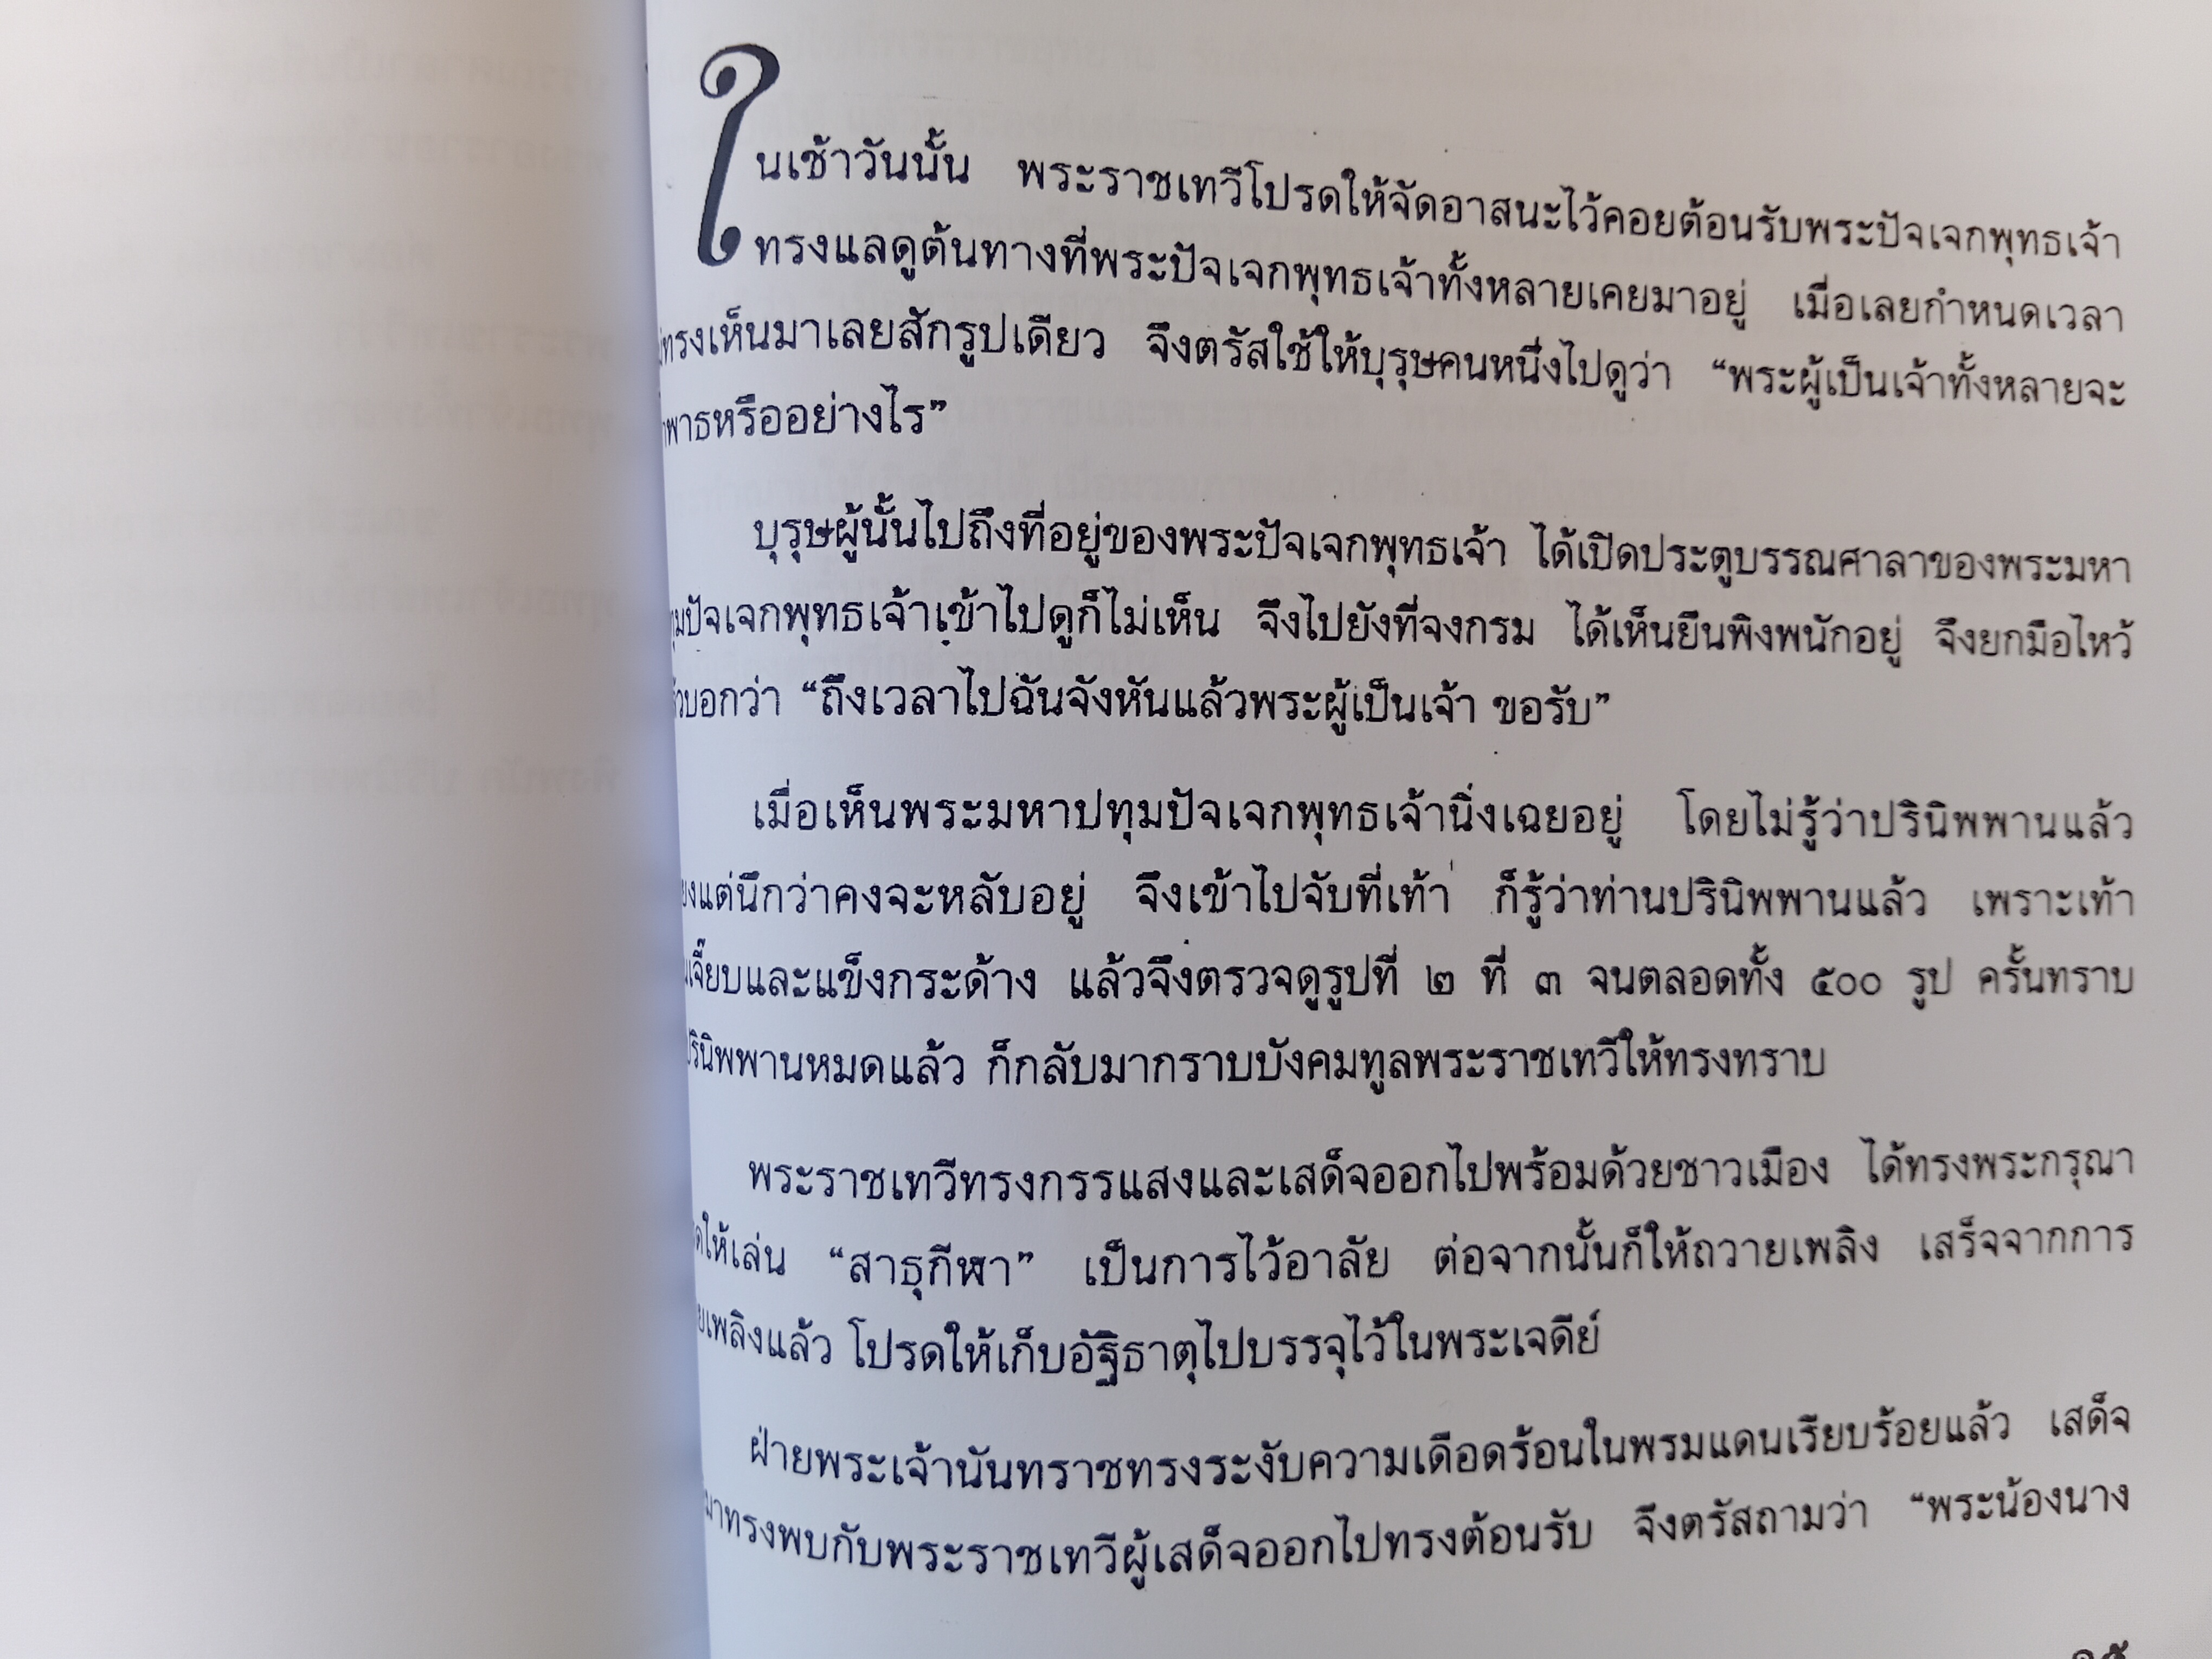 ในเช้าวันนั้น พระราชเทวีโปรดให้จัดอาสนะไว้คอยต้อนรับพระปัจเจกพุทธเจ้า
ทรงแลดูต้นทางที่พระปัจเจกพุทธเจ้าทั้งหลายเคยมาอยู่ เมื่อเลยกำหนดเวลา
ทรงเห็นมาเลยสักรูปเดียว จึงตรัสใช้ให้บุรุษคนหนึ่งไปดูว่า “พระผู้เป็นเจ้าทั้งหลายจะ
พาธหรืออย่างไร”
บุรุษผู้นั้นไปถึงที่อยู่ของพระปัจเจกพุทธเจ้า ได้เปิดประตูบรรณศาลาของพระมหา
ุมปัจเจกพุทธเจ้าเข้าไปดูก็ไม่เห็น จึงไปยังที่จงกรม ได้เห็นยืนพิงพนักอยู่ จึงยกมือไหว้
้วบอกว่า “ถึงเวลาไปฉันจังหันแล้วพระผู้เป็นเจ้า ขอรับ”
เมื่อเห็นพระมหาปทุมปัจเจกพุทธเจ้านิ่งเฉยอยู่ โดยไม่รู้ว่าปรินิพพานแล้ว
ยงแต่นึกว่าคงจะหลับอยู่ จึงเข้าไปจับที่เท้า ก็รู้ว่าท่านปรินิพพานแล้ว เพราะเท้า
นเจี๊ยบและแข็งกระด้าง แล้วจึงตรวจดูรูปที่ ๒ ที่ ๓ จนตลอดทั้ง ๕๐๐ รูป ครั้นทราบ
ปรินิพพานหมดแล้ว ก็กลับมากราบบังคมทูลพระราชเทวีให้ทรงทราบ
พระราชเทวีทรงกรรแสงและเสด็จออกไปพร้อมด้วยชาวเมือง ได้ทรงพระกรุณา
ดให้เล่น “สาธุกีฬา” เป็นการไว้อาลัย ต่อจากนั้นก็ให้ถวายเพลิง เสร็จจากการ
ยเพลิงแล้ว โปรดให้เก็บอัฐิธาตุไปบรรจุไว้ในพระเจดีย์
ฝ่ายพระเจ้านันทราชทรงระงับความเดือดร้อนในพรมแดนเรียบร้อยแล้ว เสด็จ
มาทรงพบกับพระราชเทวีผู้เสด็จออกไปทรงต้อนรับ จึงตรัสถามว่า “พระน้องนาง